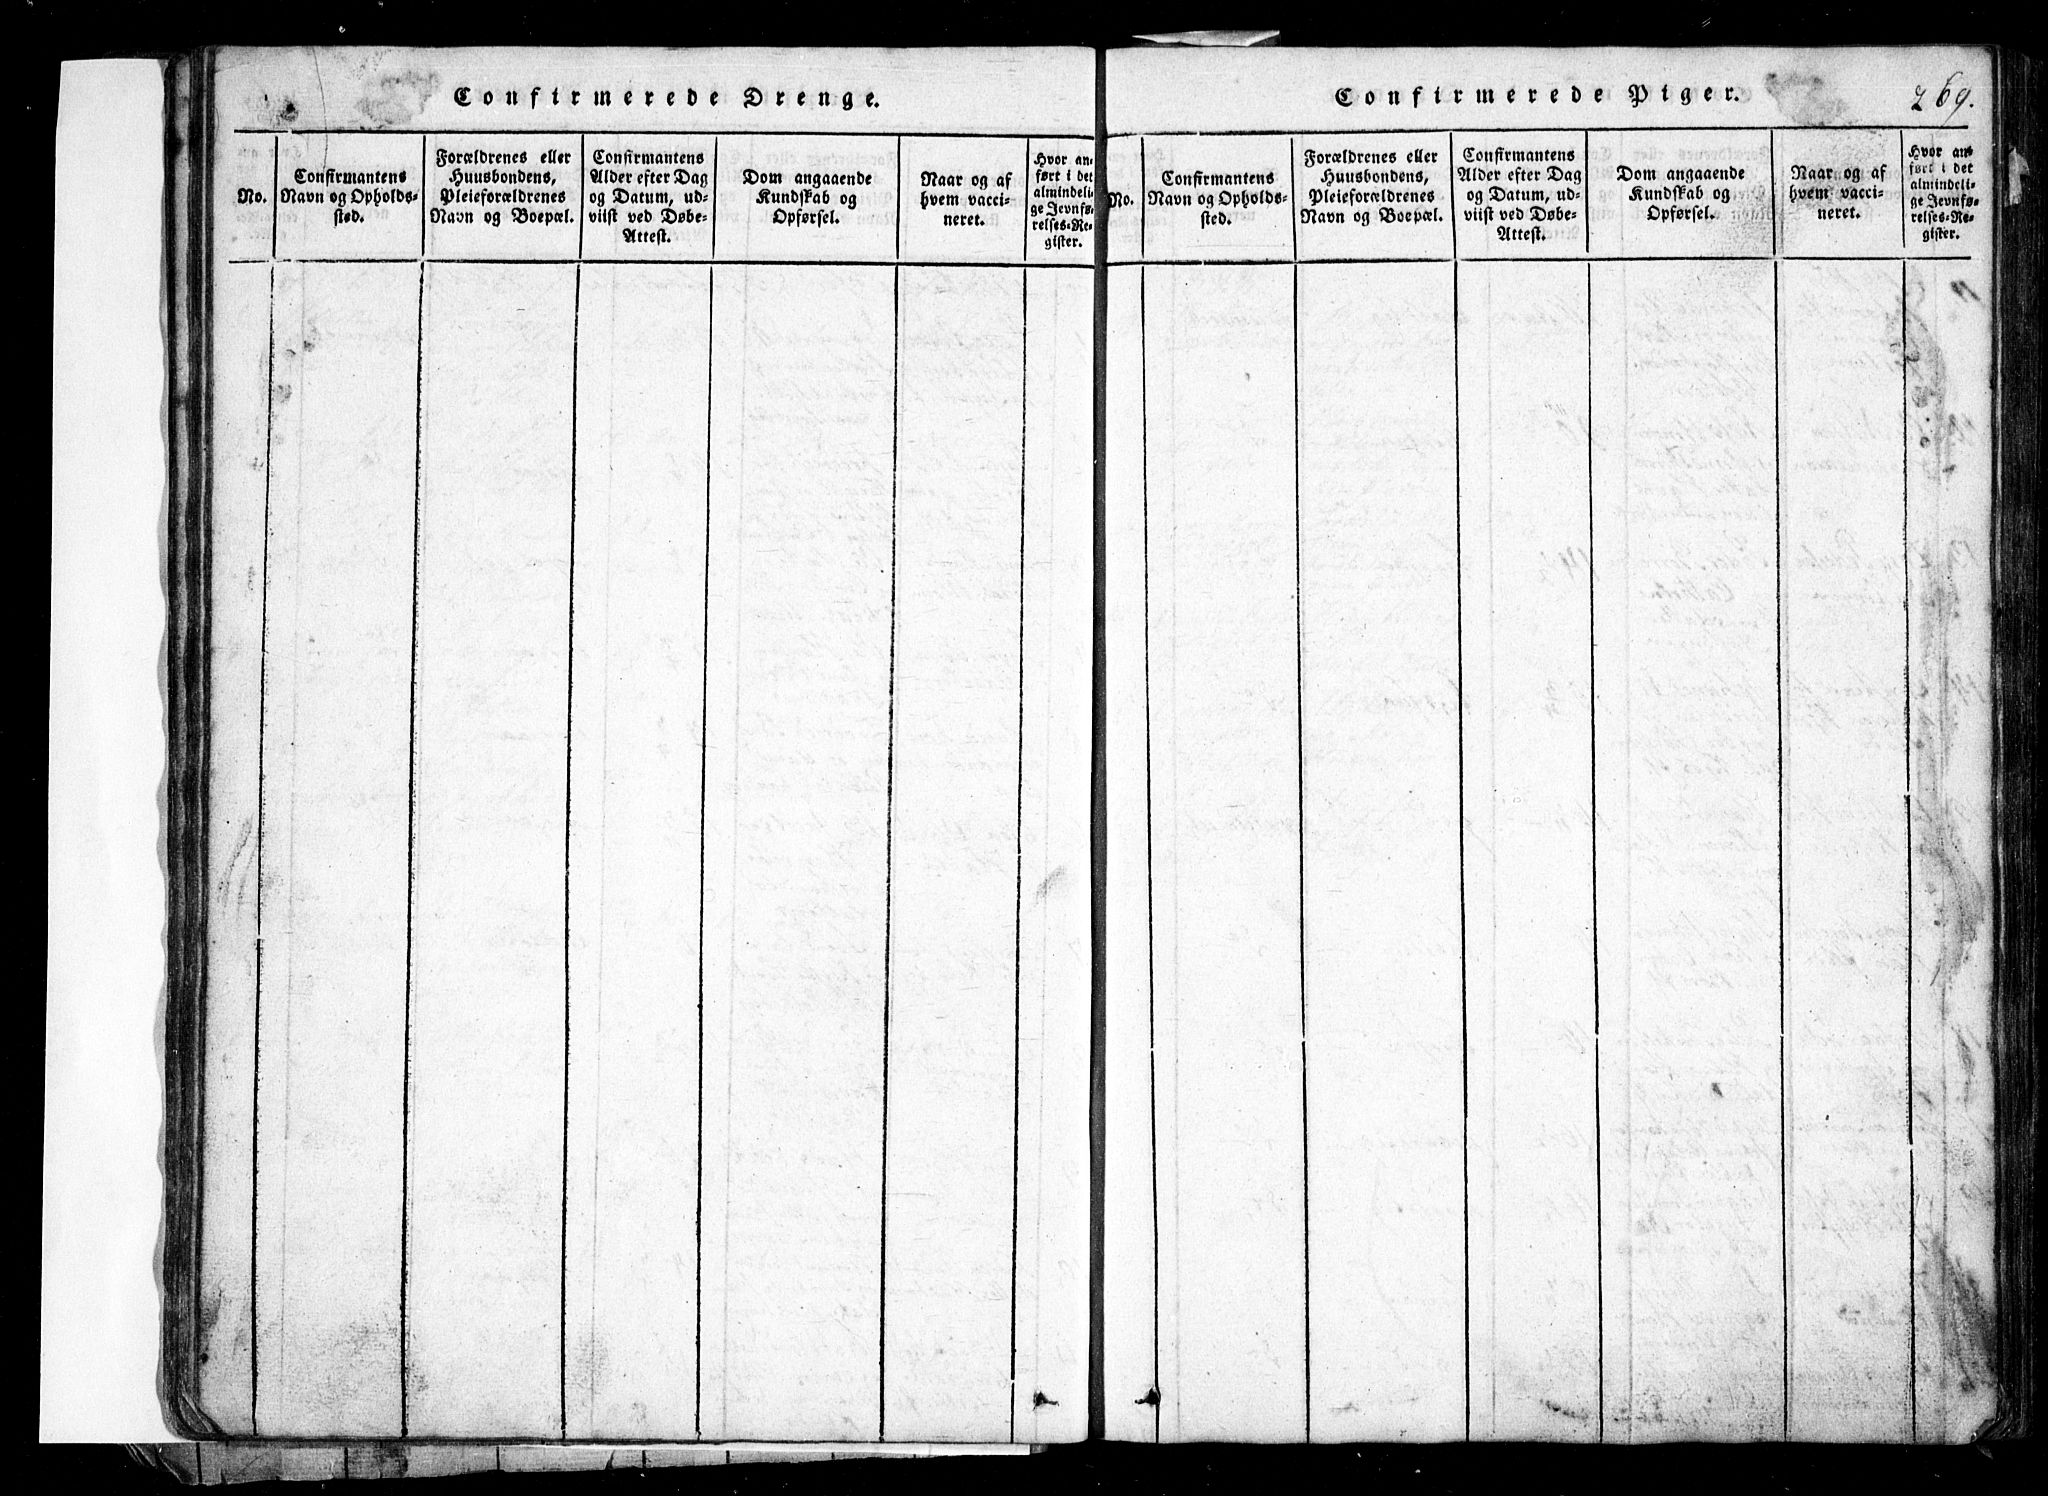 Confirmerede Drenge.
No.
Confirmantens
Navn og Opholds-
sted.
Forældrenes eller
Huusbondens,
Pleieforældrenes
Navn og Boepæl.
Confirmantens
Alder efter Dag
og Datum, ud-
viist ved Døbe-
Attest.
Dom angaaende
Kundskab og
Opførsel.
Naar og af
hvem vacci-
neret.
Hvor an-
ført i det
almindeli-
ge Jevnfø-
relses-Re-
gister.
Confirmerede Piger.
269.
No.
Confirmantens
Navn og Opholds-
sted.
Forældrenes eller
Huusbondens,
Pleieforældrenes
Navn og Boepæl.
Confirmantens
Alder efter Dag
og Datum, ud-
viist ved Døbe-
Attest.
Dom angaaende
Kundskab og
Opførsel.
Naar og af
hvem vacci-
neret.
Hvor an-
ført i det
almindeli-
ge Jevnfø-
relses-Re-
gister.